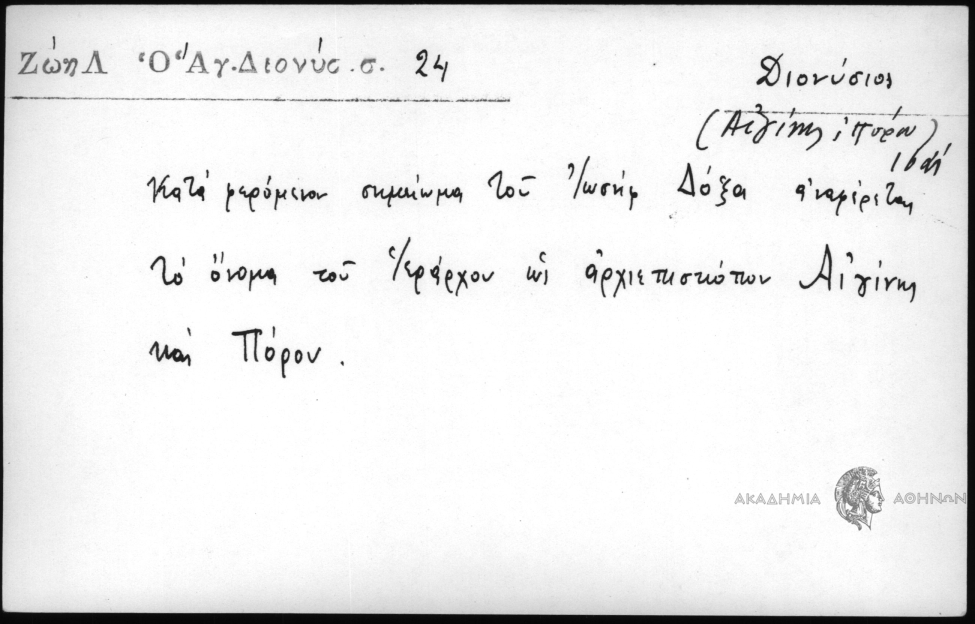 Ζώη Λ Ὁ Ἁγ. Διονύσ. σ. 24
Διονύσιος
(Αἰγίνης
Κατά φερόμενον σημείωμα τοῦ Ἰωσήφ Δόξα ἀναφέρεται
τό ὄνομα τοῦ Ἱεράρχου ὡς ἀρχιεπισκόπου Αἰγίνης
καί Πόρου.
ΑΚΑΔΗΜΙΑ ΑΘΗΝΩΝ